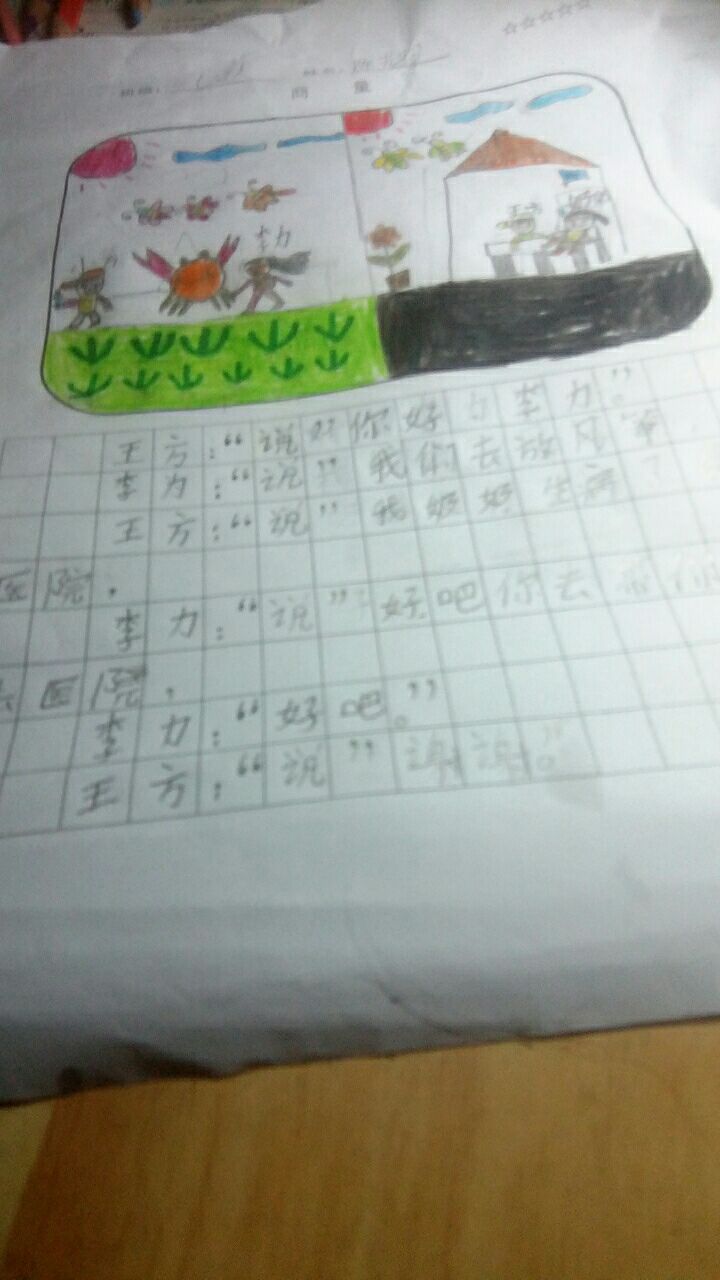 ☆☆☆☆☆
商 量
王方：“说好你好 李力。”
李力：“说”我们去放风筝
王方：“说”我奶奶生病了
医院，
李力：“说”好吧你去
去医院，
李力：“好吧。”
王方：“说”谢谢。”